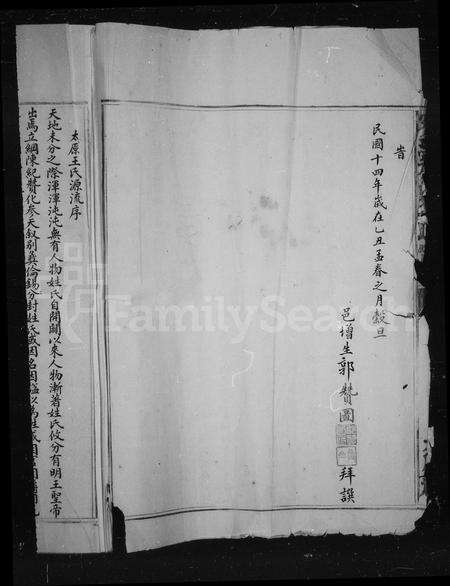 旹
民國十四年歲在乙丑孟春之月穀旦
邑增生郭贊圖
拜譔
太原王氏源流序
天地未分之際渾渾沌沌無有人物姓氏自開闢以來人物漸著姓氏攸分有明王聖帝
出焉立綱陳紀贊化參天敘別彝倫錫分封姓氏或因名因謚以為姓或因
FamilySearch